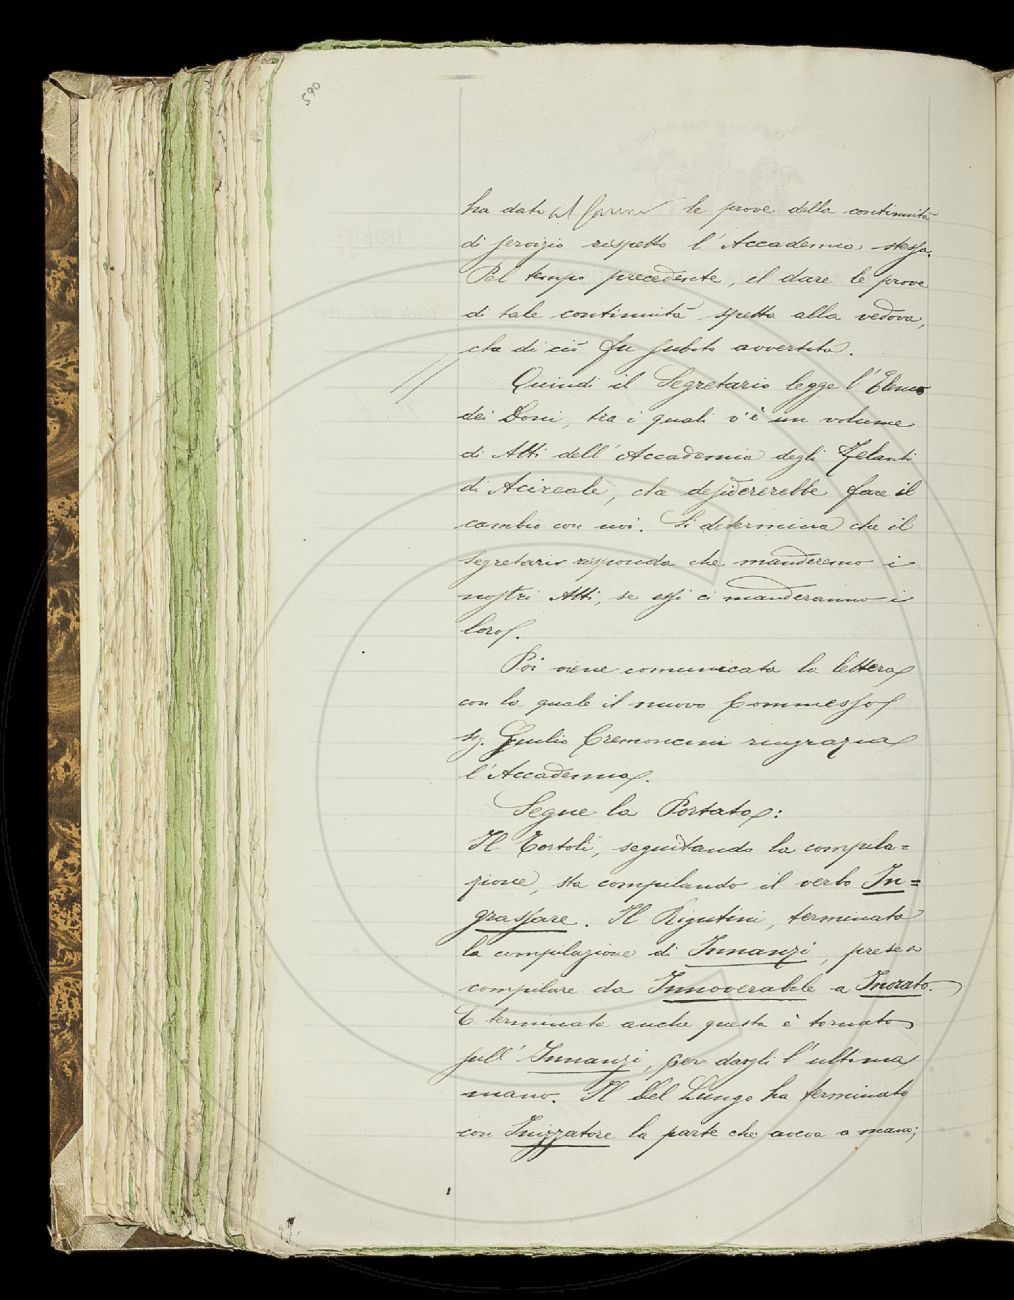 590
ha dato le prove della continuità
di servizio rispetto l'Accademia stessa.
Pel tempo precedente, il dare le prove
di tale continuità spetta alla vedova,
che di ciò fu subito avvertita.
Quindi il Segretario legge l'Elenco
dei Doni, tra i quali v'è un volume
di Atti dell'Accademia degli Zelanti
di Acireale, che desidererebbe fare il
cambio con noi. Si determina che il
Segretario risponda che manderemo i
nostri Atti, se essi ci manderanno i
loro.
Poi viene comunicata la lettera
con la quale il nuovo Commesso
Sig. Giulio Cremoncini ringrazia
l'Accademia.
Segue la Portata:
Il Tortoli, seguitando la compila=
zione, sta compilando il verbo In=
grassare. Il Rigutini, terminata
la compilazione di Innanzi, prese a
compilare da Innoverabile a Inorato.
E terminata anche questa è tornato
sull'Innanzi, per dargli l'ultima
mano. Il Del Lungo ha terminato
con Inizzatore la parte che aveva a mano;